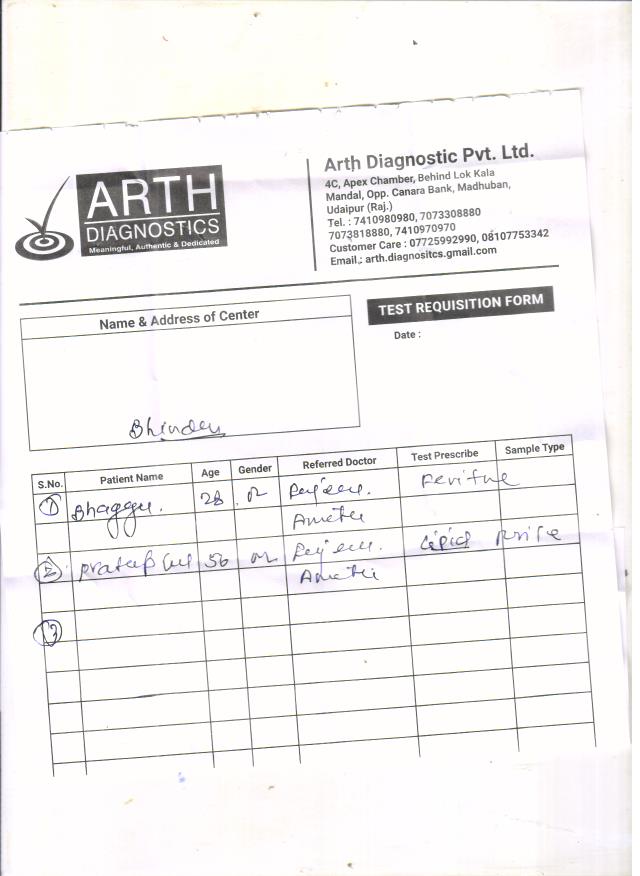 ARTH
DIAGNOSTICS
Meaningful, Authentic & Dedicated
Arth Diagnostic Pvt. Ltd.
4C, Apex Chamber, Behind Lok Kala
Mandal, Opp. Canara Bank, Madhuban,
Udaipur (Raj.)
Tel. : 7410980980, 7073308880
7073818880, 7410970970
Customer Care : 07725992990, 08107753342
Email.: arth.diagnositcs.gmail.com
TEST REQUISITION FORM
Date :
Name & Address of Center
Bhinder
S.No. Patient Name Age Gender Referred Doctor Test Prescribe Sample Type
1 Bhaggu. 28
2 Pratap 56 Lipid
3